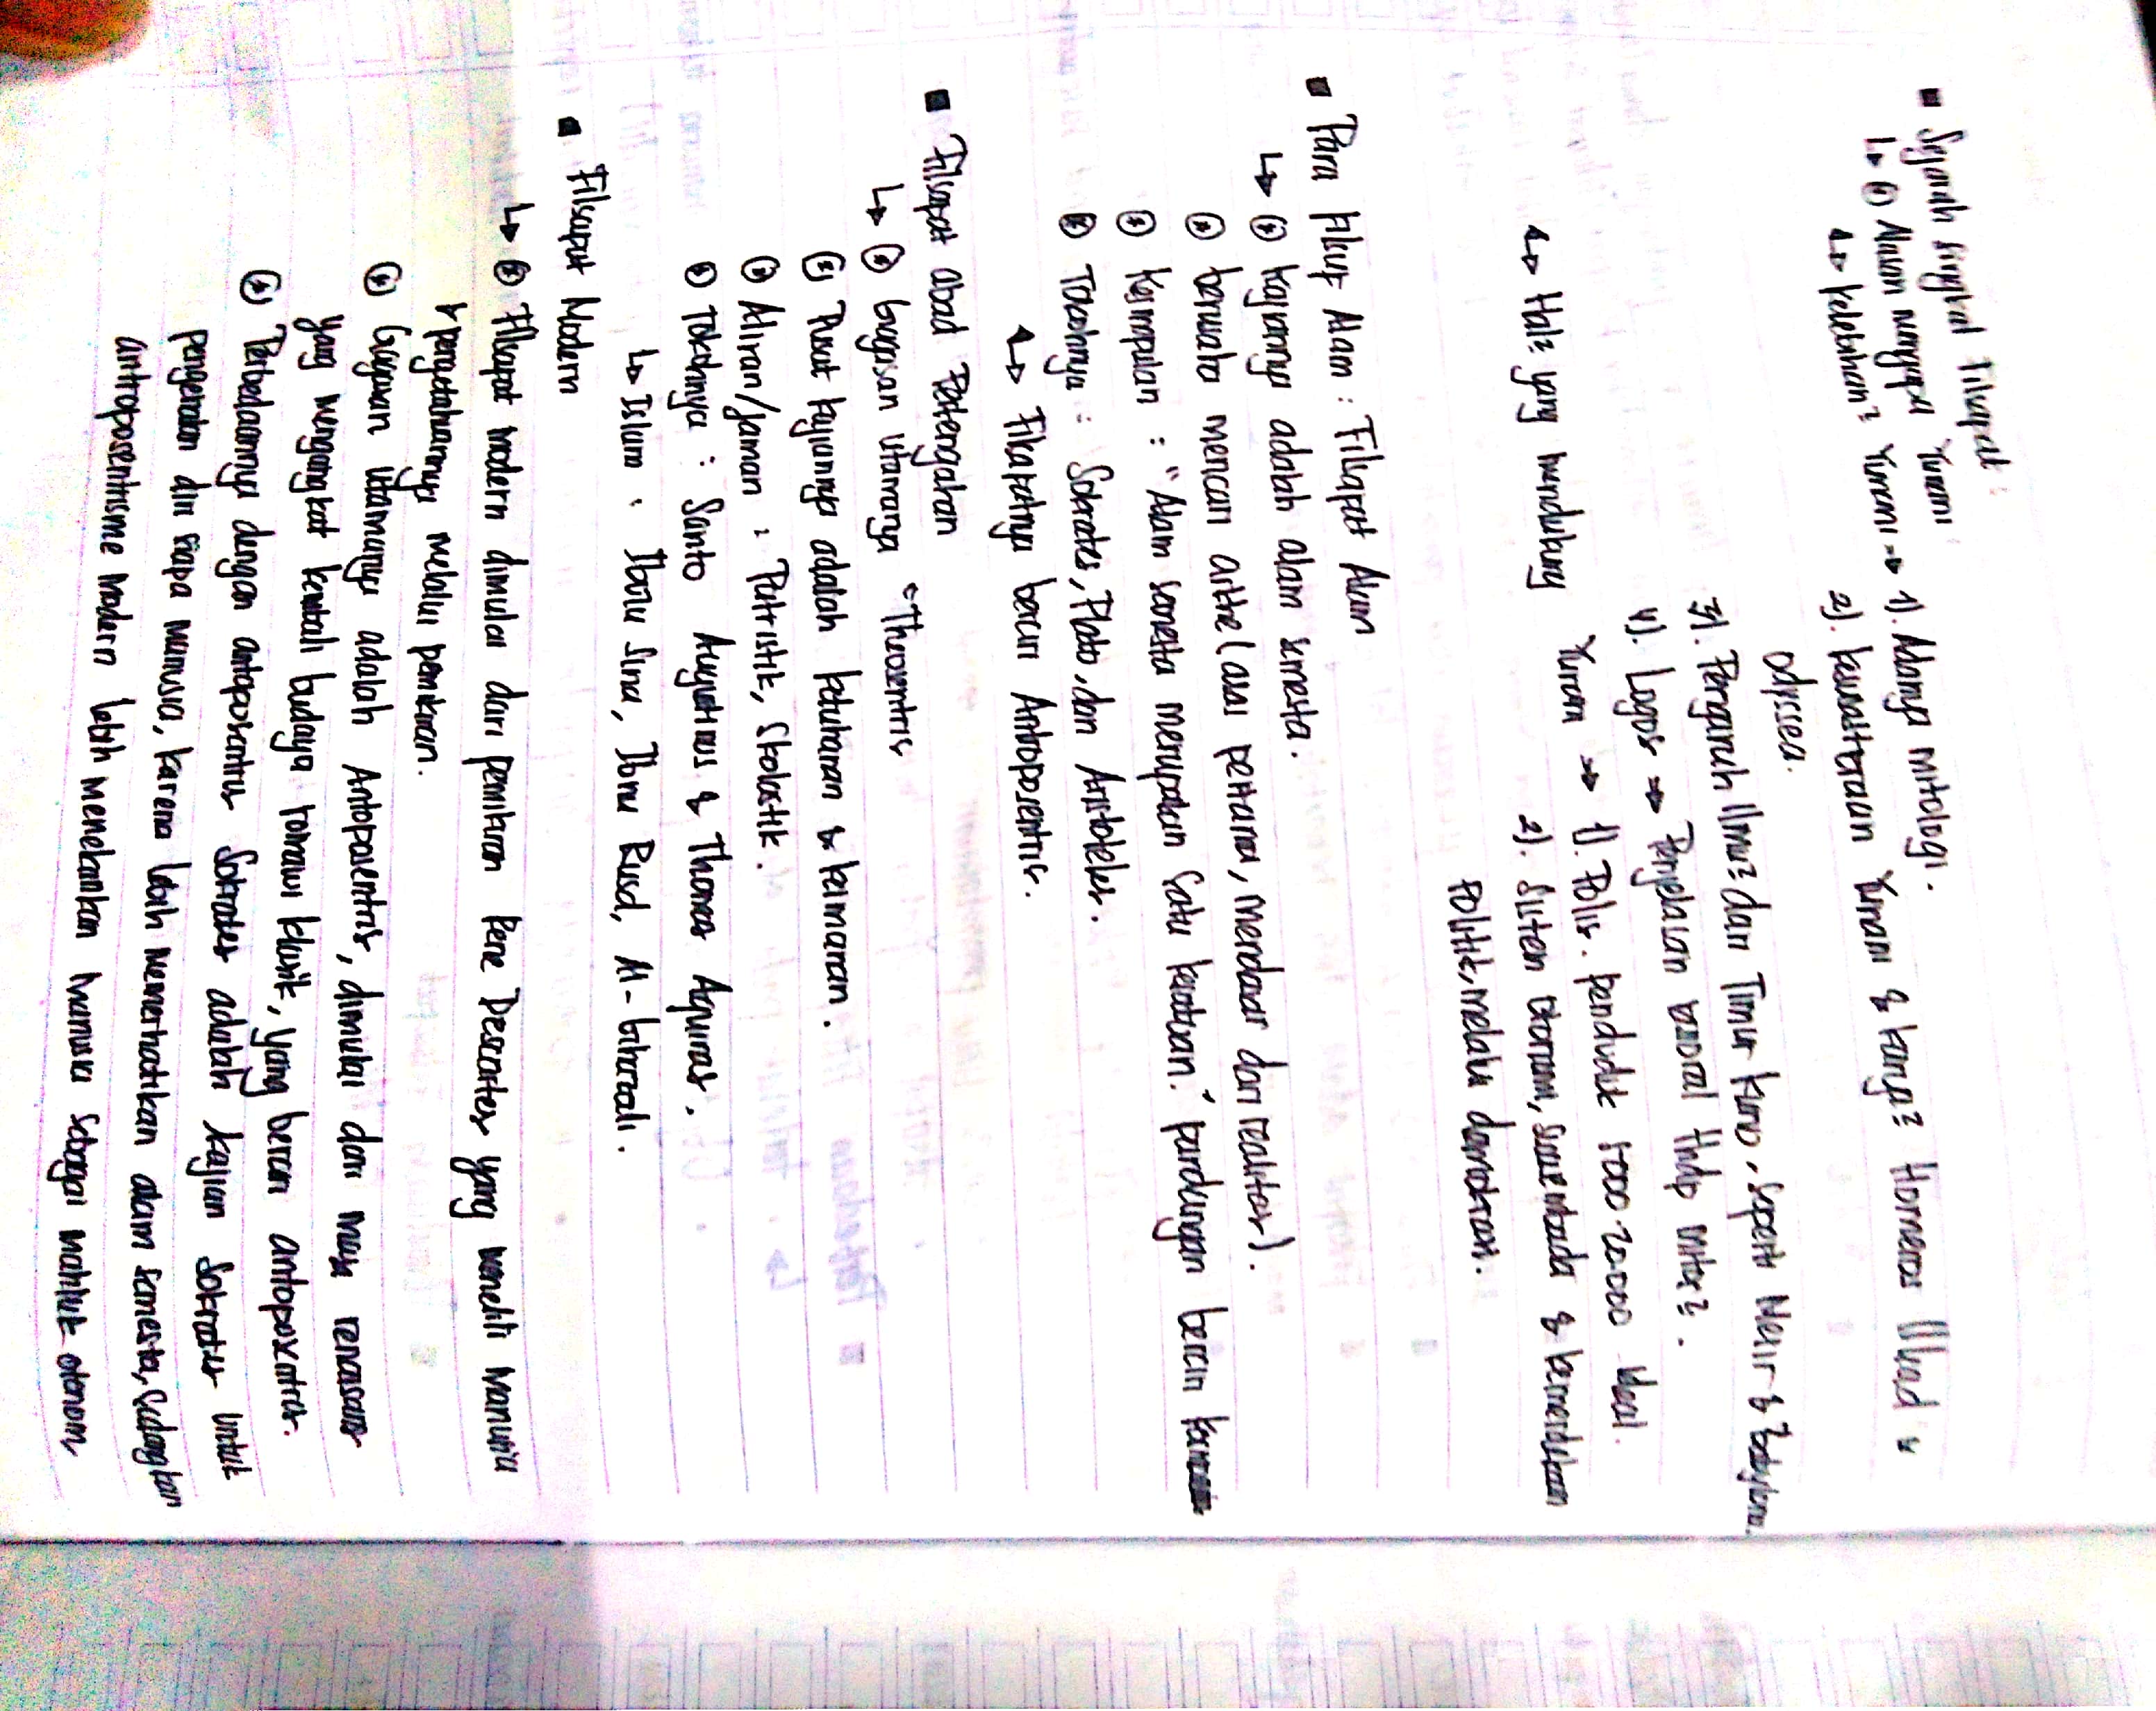 ▪ Sejarah singkat Filsapat :
↳ ⊛ Alasan mengapa Yunani
↳ Kelebihan² Yunani → 1). Adanya mitologi.
2). Kesusatteraan Yunani & karya² Homeros Illiad &
Odissea.
3). Pengaruh Ilmu² dari Timur Kuno, seperti Mesir & Babylonia.
4). Logos → Penjelasan rasional thdp mitos².
↳ Hal² yang mendukung
Yunani → 1). Polis. penduduk 5000-20.000 ideal.
2). Sistem otonom, swasembada & kemerdekaan
politik, melalui demokrasi.
▪ Para Filsuf Alam : Filsapat Alam
↳ ⊛ Kajiannya adalah alam semesta.
⊛ berusaha mencari arkhe (asal pertama, mendasar dari realitas).
⊛ Kesimpulan : "Alam semesta merupakan satu kesatuan." pandangan berciri
⊛ Tokohnya : Sokrates, Plato, dan Aristoteles.
↳ Filsafatnya berciri Antoposentris.
▪ Filsapat abad Pertengahan
↳ ⊛ Gagasan Utamanya "Theosentris
⊛ Pusat kajiannya adalah ketuhanan & keimanan.
⊛ Aliran/Jaman : Patristik, Skolastik.
⊛ Tokohnya : Santo Agustinus & Thomas Aquinas.
↳ Islam : Ibnu Sina, Ibnu Rusd, Al-
▪ Filsapat Modern
↳ ⊛ Filsapat modern dimulai dari pemikiran Rene Descartes yang meneliti manusia
& pengetahuannya melalui pemikiran.
⊛ Gagasan Utamanya adalah Antoposentris, dimulai dari masa renaisans
yang mengangkat kembali budaya romawi klasik, yang bercirri antoposentris.
⊛ Perbedaannya dengan antoposentris Sokrates adalah kajian Sokrates untuk
pengenalan diri siapa manusia, karena lebih memerhatikan alam semesta, sedangkan
antroposentrisme modern lebih menekankan manusia sebagai mahluk otonom